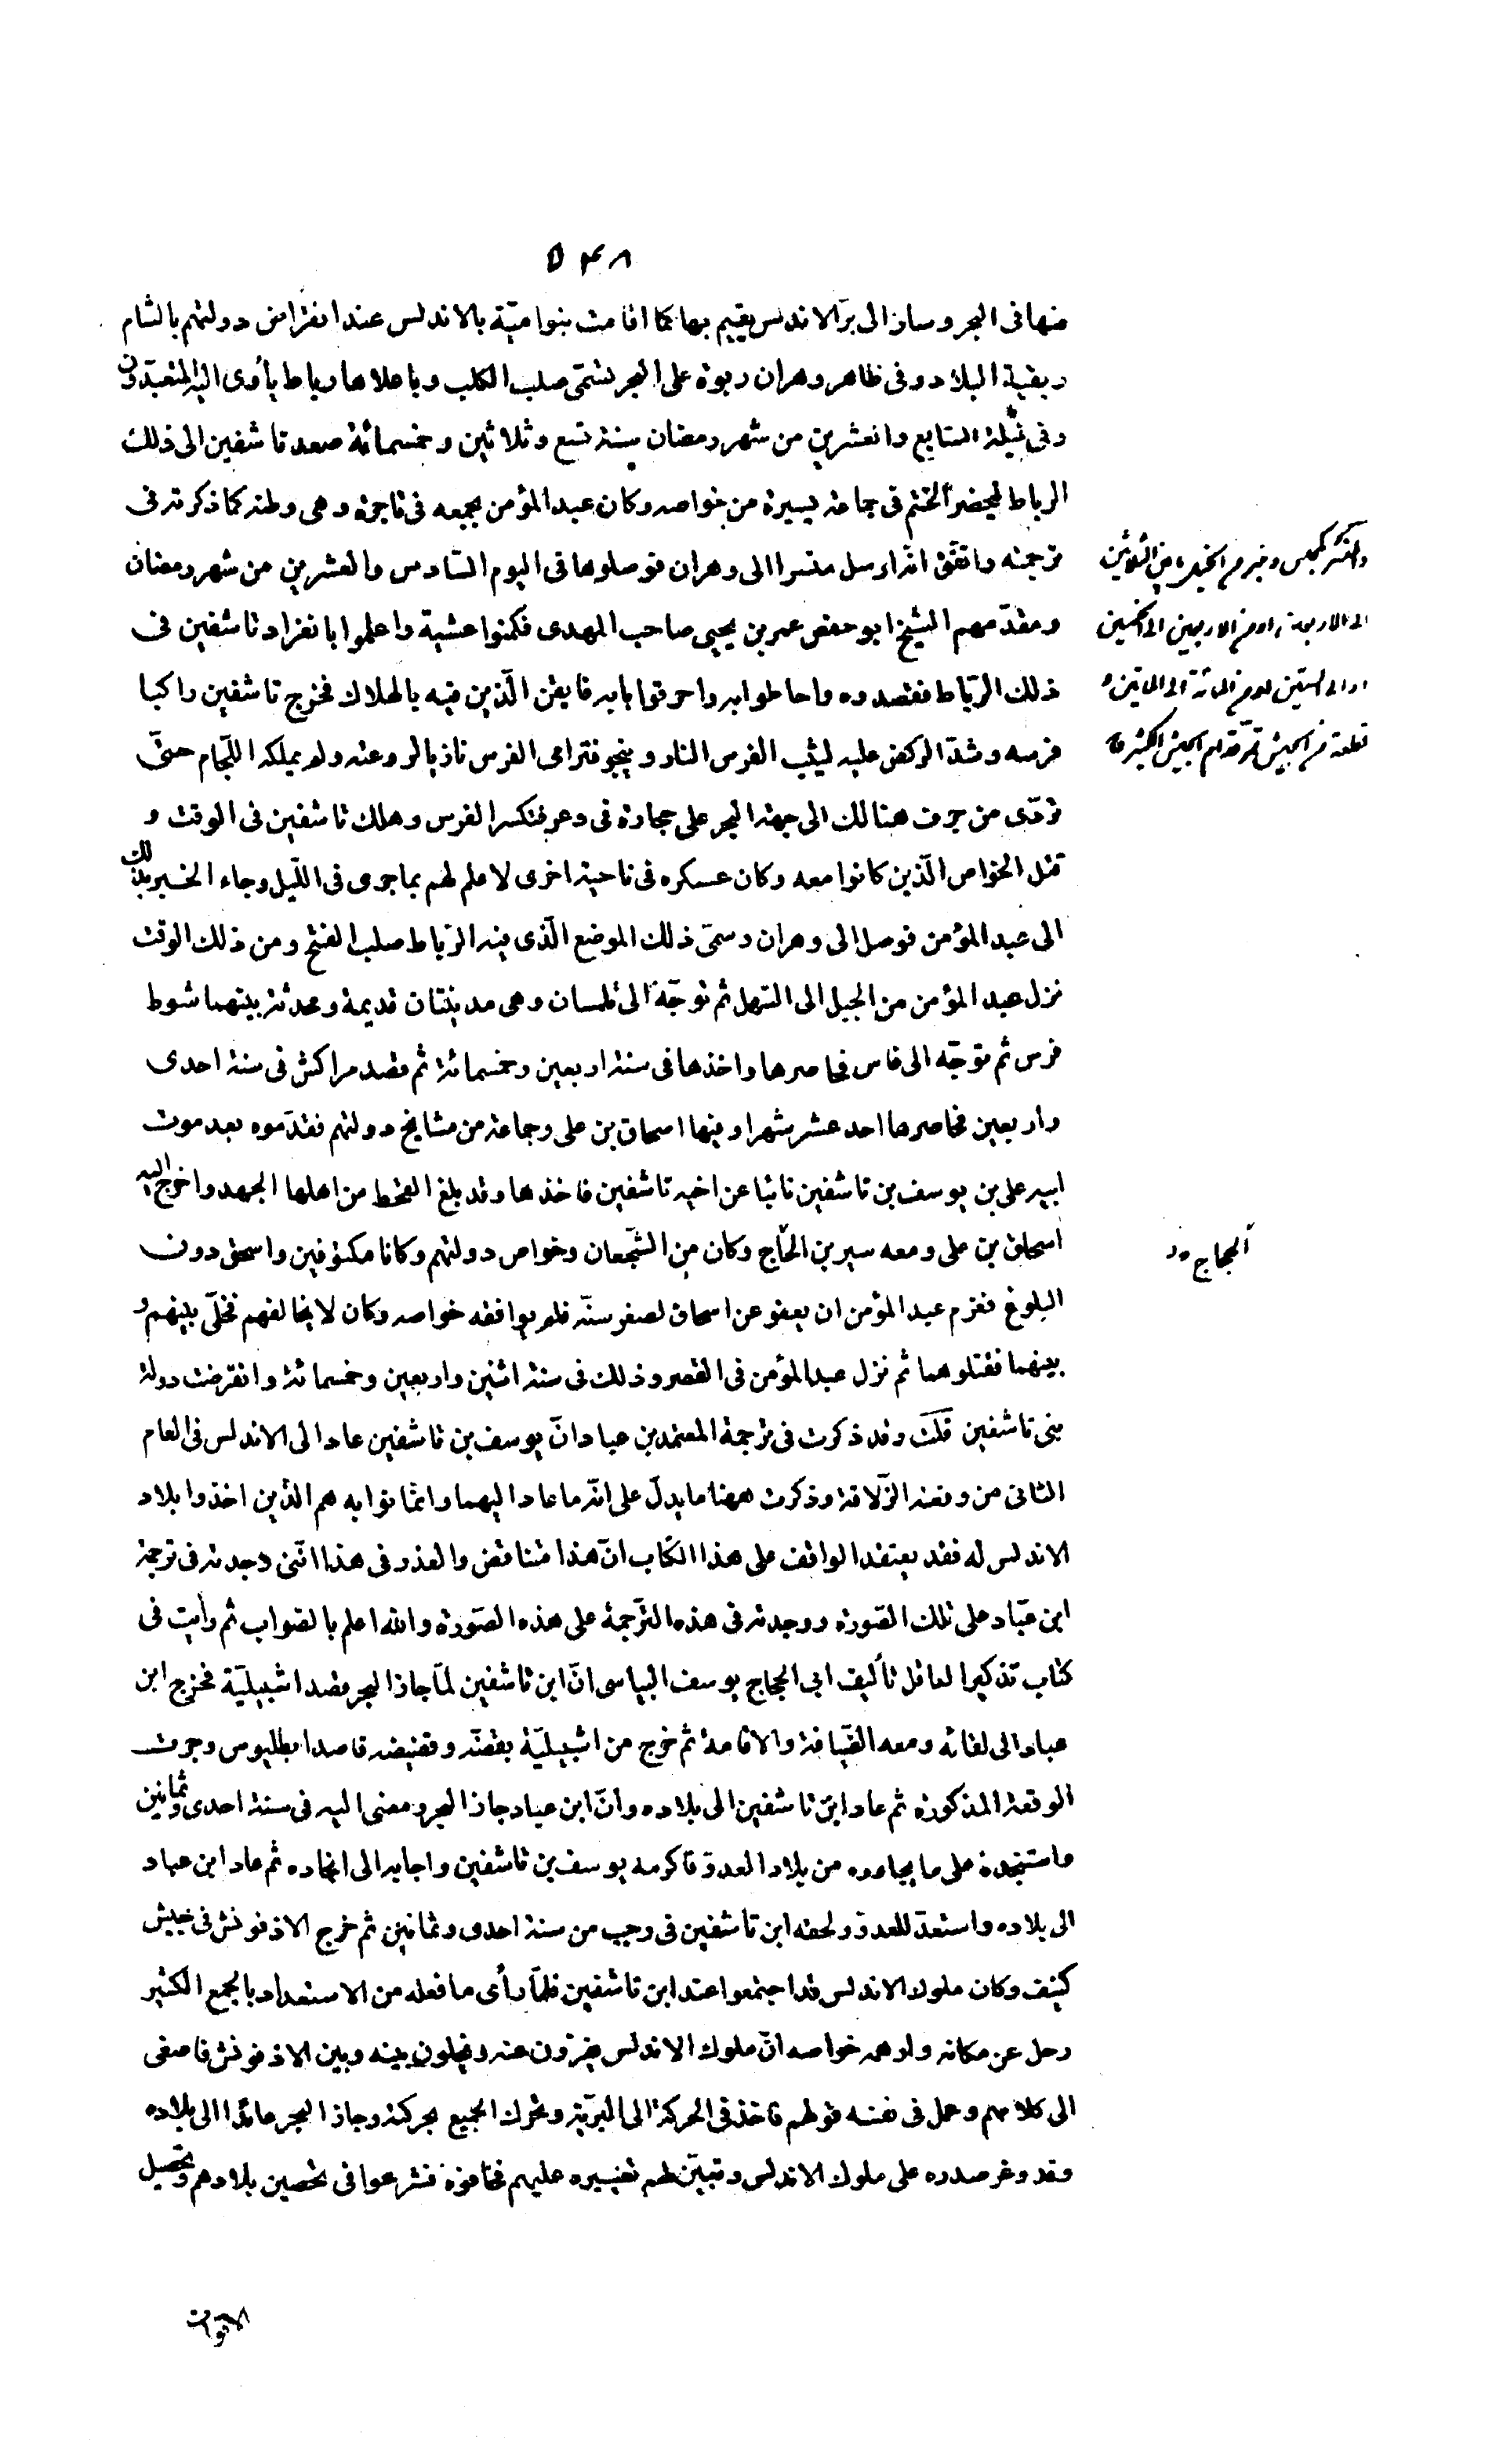 ٥٤٨
منها فى البحر وسار الى برّ الاندلس يقيم بها كما اقامت بنو اميّة بالاندلس عند انقراض دولتهم بالشام
وبقية البلاد وفى ظاهر وهران ربوة على البحر تسمّى صلب الكلب وباعلاها رباط يأوى اليه المتعبّدون
وفى ليلة السابع والعشرين من شهر رمضان سنة تسع وثلاثين وخمسمائة صعد تاشفين الى ذلك
الرباط ليحضر الختم فى جماعة يسيرة من خواصه وكان عبد المؤمن بجمعه فى تاجرة وهى وطنه كما ذكرته فى
ترجمته واتفق انه ارسل منسرا الى وهران فوصلوها فى اليوم السّادس والعشرين من شهر رمضان
ومقدّمهم الشيخ ابو حفص عمر بن يحيى صاحب المهدى فكمنوا عشية واعلموا بانفراد تاشفين فى
ذلك الرّباط فقصدوه واحاطوا به واحرقوا بابه فايقن الّذين فيه بالهلاك فخرج تاشفين راكبا
فرسه وشدّ الركض عليه ليثب الفرس النار وينجو فترامى الفرس نازيا لروعته ولم يملكه اللّجام حتّى
تردّى من جرف هنالك الى جهة البحر على حجارة فى وعر فتكسر الفرس وهلك تاشفين فى الوقت و
قتل الخواص الّذين كانوا معه وكان عسكره فى ناحية اخرى لا علم لهم بما جرى فى اللّيل وجاء الخبر بذلك
الى عبد المؤمن فوصل الى وهران وسمّى ذلك الموضع الّذى فيه الرّباط صلب الفتح ومن ذلك الوقت
نزل عبد المؤمن من الجبل الى السّهل ثم توجّه الى تلمسان وهى مدينتان قديمة ومحدثة بينهما شوط
فرس ثم توجّه الى فاس فحاصرها واخذها فى سنة اربعين وخمسمائة ثم قصد مراكش فى سنة احدى
واربعين فحاصرها احد عشر شهرا وفيها اسحاق بن على وجماعة من مشايخ دولتهم فقدّموه بعد موت
ابيه على بن يوسف بن تاشفين نائبا عن اخيه تاشفين فاخذها وقد بلغ القحط من اهلها الجهد واخرج اليه
اسحاق بن على ومعه سير بن الحّاج وكان من الشّجعان وخواص دولتهم وكانا مكتوفين واسحق دون
البلوغ فعزم عبد المؤمن ان يعفو عن اسحاق لصغر سنّه فلم يوافقه خواصه وكان لا يخالفهم فخلّى بينهم و
بينهما فقتلوهما ثم نزل عبد المؤمن فى القصر وذلك فى سنة اثنين واربعين وخمسمائة وانقرضت دولة
بنى تاشفين قلت وقد ذكرت فى ترجمة المعتمد بن عباد انّ يوسف بن تاشفين عاد الى الاندلس فى العام
الثانى من وقعة الزّلاقة وذكرت ههنا ما يدلّ على انّه ما عاد اليهما وانّما نوابه هم الذين اخذوا بلاد
الاندلس له فقد يعتقد الواقف على هذا الكتاب انّ هذا متناقض والعذر فى هذا انّنى وجدته فى ترجمة
ابن عبّاد على تلك الصّورة ووجدته فى هذه التّرجمة على هذه الصّورة والله اعلم بالصّواب ثم رأيت فى
كتاب تذكير العاقل تأليف ابى الحجاج يوسف البياسى انّ ابن تاشفين لمّا جاز البحر قصد اشبيليّة فخرج ابن
عباد الى لقائه ومعه الضّيافة والاقامة ثم خرج من اشبيليّة بقضّه وقضيضه قاصدا بطليوس وجرت
الوقعة المذكورة ثم عاد ابن تاشفين الى بلاده وانّ ابن عباد جاز البحر ومضى اليه فى سنة احدى وثمانين
واستنجده على ما يجاوره من بلاد العدوّ فاكرمه يوسف بن تاشفين واجابه الى انجاده ثم عاد ابن عباد
الى بلاده واستعدّ للعدوّ ولحقه ابن تاشفين فى رجب من سنة احدى وثمانين ثم خرج الاذفونش فى جيش
كثيف وكان ملوك الاندلس قد اجتمعوا عند ابن تاشفين فلمّا رأى ما فعله من الاستعداد بالجمع الكثير
رحل عن مكانه واوهمه خواصه انّ ملوك الاندلس يفرّون عنه ويخلون بينه وبين الاذفونش فاصغى
الى كلامهم وعمل فى نفسه قولهم فاخذ فى الحركة الى البريّة وتحرك الجميع بحركته وجاز البحر عائدا الى بلاده
وقد وغر صدره على ملوك الاندلس وتبيّن لهم تغييره عليهم فخافوه فشرعوا فى تحصين بلادهم وتحصيل
والمنسر كمجلس ومنبر من الخيل ما بين الثلاثين
الى الاربعين او من الاربعين الى الخمسين
او الى الستين او من المائة الى المائتين و
قطعة من الجيش تمرّ قدام الجيش الكثير ق
الحجاج
الاقوات